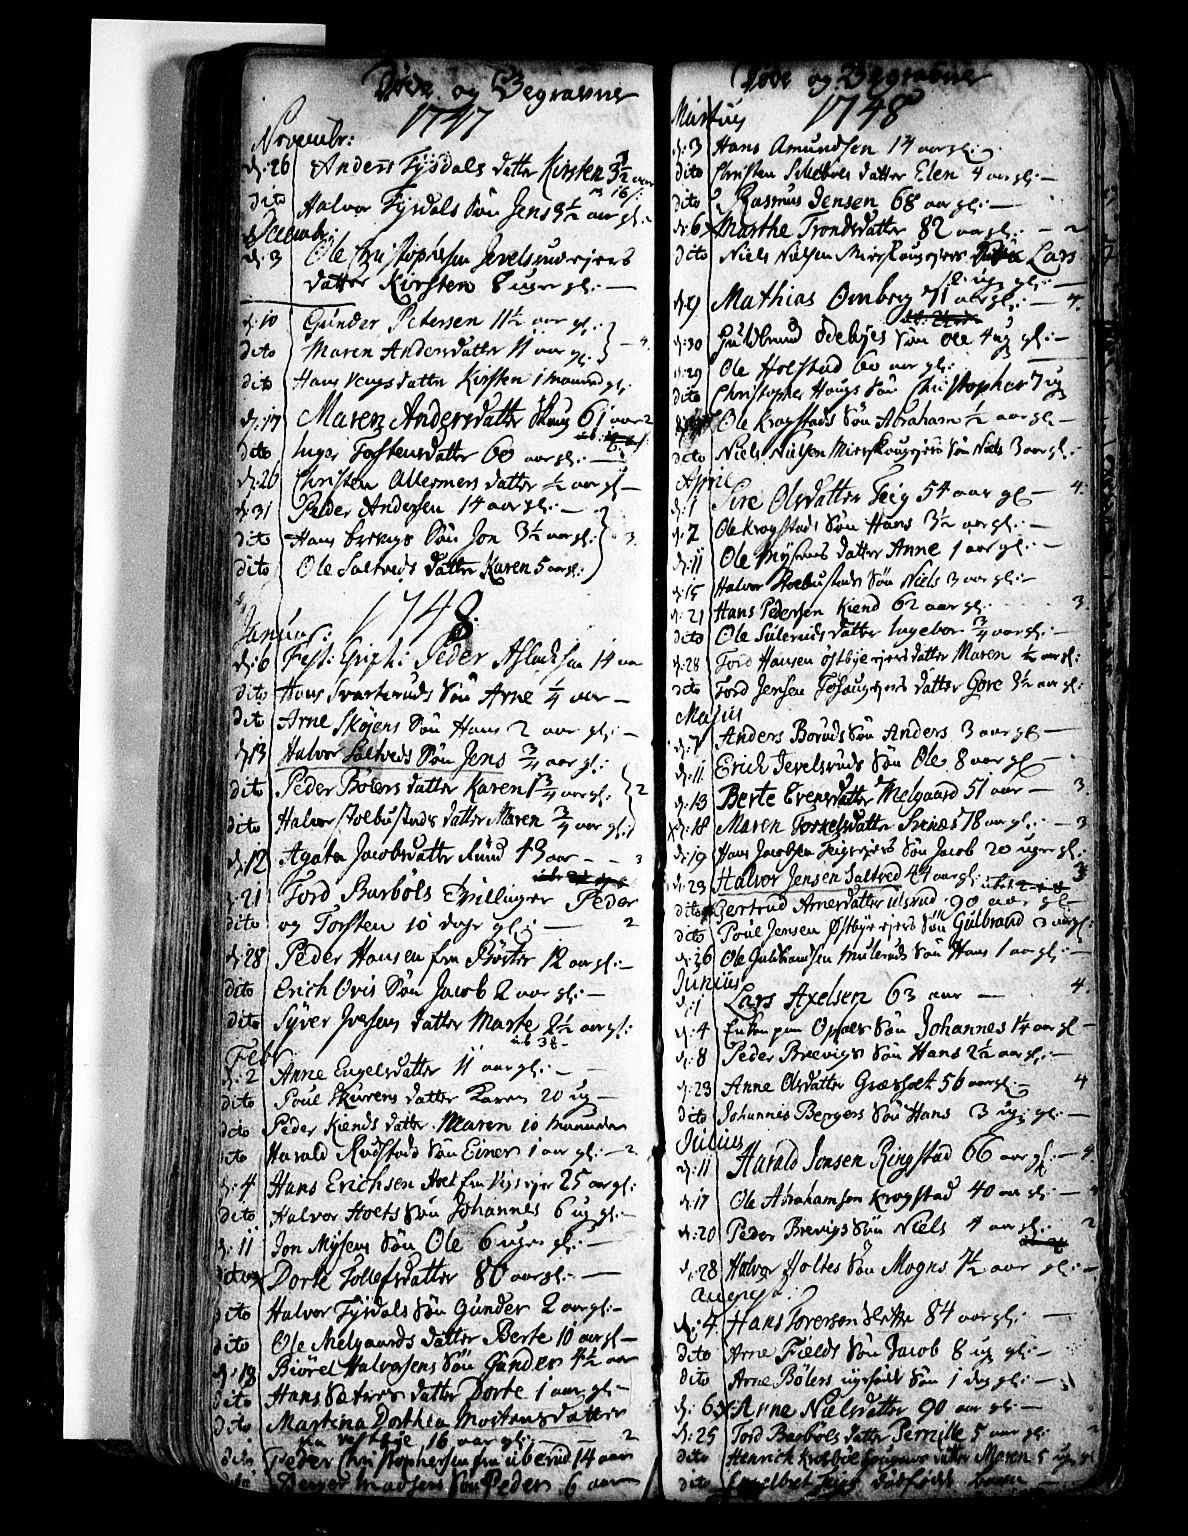 Døde og Begravne
1747
Novembr:
d: 26 Anders Fysdals datter Kirsten 3½ aar
dito Halvor Fysdals Søn Jens 9½ aar gl:
Decembr:
d: 3 Ole Christophersen Jevelsrud ejers
datter Kirsten 8 uger gl: —
d: 10 Gunder Petersen 11½ aar gl:
dito Maren Andersdatter 11 aar gl: — 4.
dito Hans datter Kirsten 1 maaned gl:
d: 17 Maren Andersdatter Skoug 61 aar 2
dito Inger Torstensdatter 60 aar gl: —
d: 26 Christen datter ½ aar gl —
d: 31 Peder Andersen 14 aar gl: —
dito Hans Søn Jon 3½ aar gl: 3.
dito Ole Saltveds datter Karen 5 aar gl:
1748
Januar:
d: 6 Fest: Epiph: Peder Aslachsen 14 aar
dito Hans Svarteruds Søn Arne ¼ aar —
dito Arne Skøjens Søn Hans 2 aar gl: —
d: 13 Halvor Saltveds Søn Jens ¾ aar gl:
dito Peder Bølers datter Karen ¾ aar gl: 2
dito Halvor Stoebustads datter Maren ¾ aar gl:
d: 12 Agata Jacobsdatter Rund 43 aar — — 3
d: 21 Tord Barbøls Tvillinger Peder
og Torsten 10 dage gl: — 2
d: 28 Peder Hansen fra 12 aar gl: —
dito Erich Ovis Søn Jacob 2 aar gl: —
dito Syver Iversens datter Marte 2½ aar gl:
Feb
d: 2 Anne Engelsdatter 11 aar gl: — —
dito Poul Skurens datter Karen 20 ug —
dito Peder Kiends datter Maren 10 maaneder
dito Harald Rudstad Søn Einer 1 aar gl: — 2
d: 4 Hans Erichsen 25 aar gl:
dito Halvor Hoels Søn Johannes 6 ug gl: —
d: 11 Jon Mysens Søn Ole 6 uger gl: —
dito Dorte Tollefsdatter 80 aar gl: —
dito Halvor Fysdals Søn Gunder 2 aar gl: —
dito Ole Melgaards datter Berte 10 aar gl —
d: 18 Halvorsens Søn Gunder 4½ aar
dito Hans datter Dorte 1 aar gl: —
dito Martina Dorthea Mortensdatter
16 aar gl: — 2
dito Peder Christophersen fra 14 aar
Madsens Søn Peder 6 aar
Døde og Begravne
1748
Martius
d: 3 Hans Amundsen 14 aar gl:
dito Christen datter Elen 4 aar gl: —
dito Rasmus Jensen 68 aar gl: —
d: 6 Marthe Trondsdatter 82 aar gl: — 2
dito Niels Nielsen Lars
ug gl: —
d: 9 Mathias Omberg 71 aar gl: — 4.
d: 30 Gulbrand Odebyes Søn Ole 4 ug gl: —
d: 29 Ole Holstad 60 aar gl: —
dito Christopher Hougs Søn Christopher 7 ug
Ole Krogstads Søn Abraham ½ aar gl —
dito Niels Nielsen Søn Niels 3 aar gl:
April
d: 1 Siri Olsdatter Teig 54 aar gl — 4.
d: 2 Ole Krogstads Søn Hans 3½ aar gl: —
d: 11 Ole Mysens datter Anne 1 aar gl: —
d: 15 Halvor Stoebustads Søn Niels 3 aar gl: —
d: 21 Hans Pedersen Kiend 62 aar gl: 3.
dito Ole Suleruds datter Ingebor ¾ aar gl: —
d: 28 Tord Hansen Østbye ejers datter Maren ½ aar gl:
dito Tord Jensen datter Gore 3½ aar gl:
Majus
d: 7 Anders Boruds Søn Anders 3 aar gl —
d: 11 Erich Jevelsruds Søn Ole 8 aar gl —
d: 13 Berte Evensdatter Melgaard 51 aar — 3
d: 18 Maren Torkelsdatter 78 aar gl: — 3
d: 19 Hans Jacobsen Søn Jacob 20 uger gl:
d: 23 Halvor Jensen Saltved 44 aar gl: 3
dito Gertrud Arnesdatter Ulsrud 90 aar gl —
dito Poul Jensen Østbye ejers Søn Gulbrand 3 aar gl:
d: 26 Ole Gulbrandsen Muleruds Søn Hans 1 aar gl: —
Junius
d: 1 Lars Axelsen 63 aar — 4.
d: 4 Søn Johannes 1½ aar gl —
d: 8 Peder Brevigs Søn Hans 2½ aar gl: —
d: 23 Anne Olsdatter 56 aar gl: — 4
dito Johannis Bergers Søn Hans 3 ug gl: —
Julius
d: 11 Harald Jonsen Ringstad 66 aar gl: — 4.
d: 17 Ole Abrahamson Krogstad 40 aar gl: —
d: 20 Peder Brevigs Søn Niels 4 aar gl: 2
d: 28 Halvor Holtes Søn Mogns 7½ aar gl: —
August:
d: 4 Hans Torersen Slette 84 aar gl: —
dito Arne Fields Søn Jacob 8 ug gl: —
dito Arne Bølers Søn 1 dag gl: —
d: 6 Anne Nielsdatter 90 aar gl: —
d: 25 Tord Barbøls datter Pernille 5 aar gl: — 2
dito Henrich datter Maren 5 ug
dito dødfødt barn —